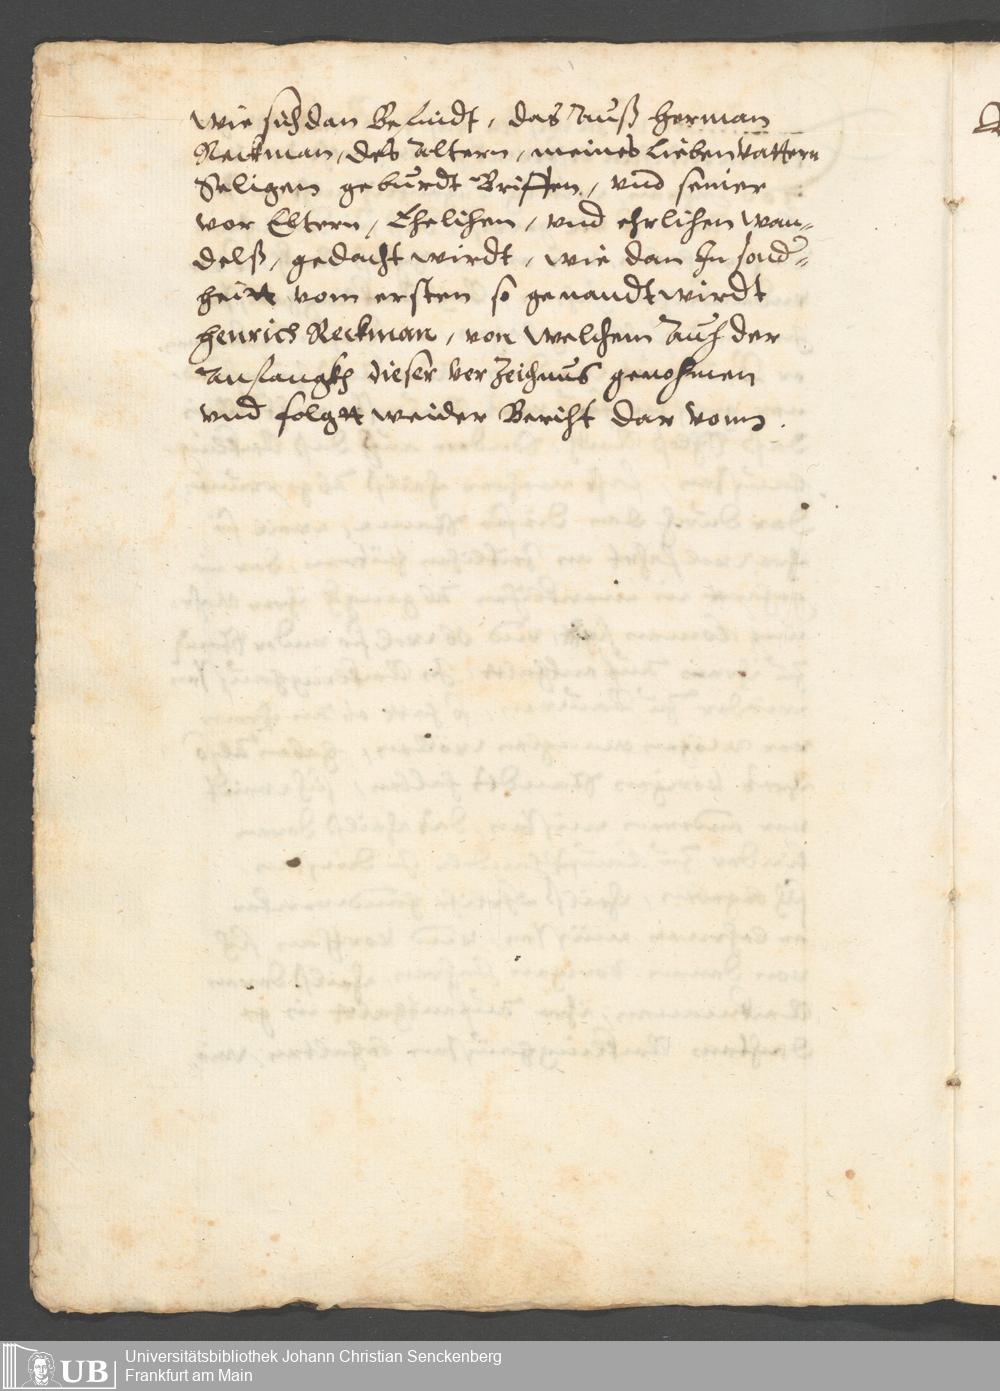 wie sich dan Befindt, das Auß Herman
Reckman, des Altern, meines Lieben Vattern
Seligen geburdt Brifften, vnd seiner
vor Eltern, Ehelichen, vnd ehrlichen wan-
delß, gedacht wirdt, wie dan In sond-
heitt vom ersten so genandt wirdt
Henrich Reckman, von welchem Auch der
Anfangkh dieser ver Zeichnus genohmen
vnd folgtt weider Bericht dar vonn.
Universitätsbibliothek Johann Christian Senckenberg
Frankfurt am Main
UB